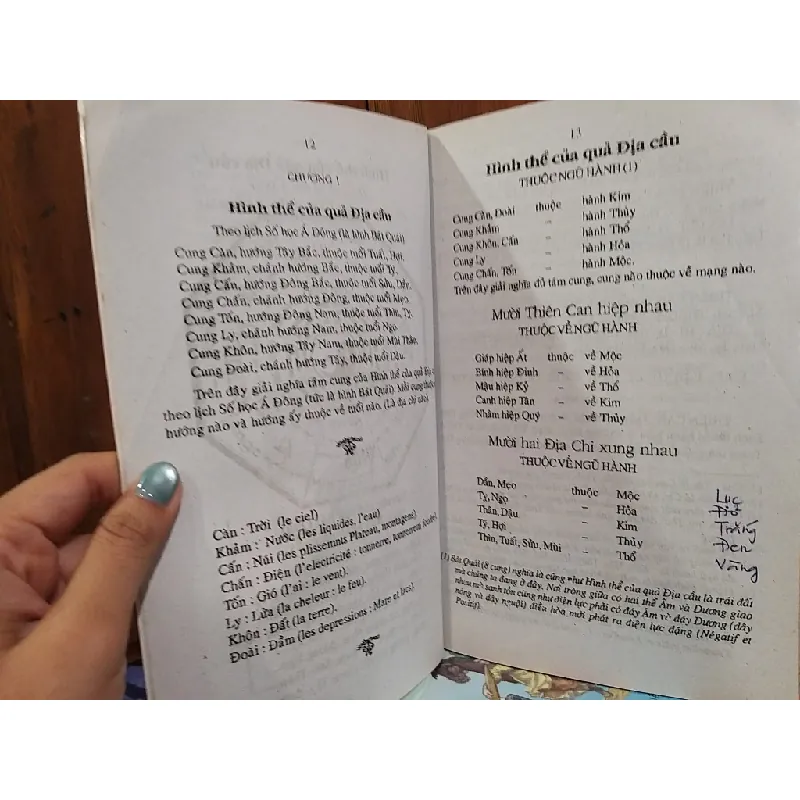 12
CHƯƠNG I
Hình thể của quả Địa cầu
Theo lịch Số học Á Đông (là hình Bát Quái)
Cung Càn, hướng Tây Bắc, thuộc mổi Tuất, Hợi.
Cung Khảm, chánh hướng Bắc, thuộc mổi Tý.
Cung Cấn, hướng Đông Bắc, thuộc tuổi Sửu, Dần.
Cung Chấn, chánh hướng Đông, thuộc tuổi Mẹo.
Cung Tốn, hướng Đông Nam, thuộc tuổi Thìn, Tỵ.
Cung Ly, chánh hướng Nam, thuộc tuổi Ngọ.
Cung Khôn, hướng Tây Nam, thuộc tuổi Mùi Thân.
Cung Đoài, chánh hướng Tây, thuộc tuổi Dậu.
Trên đây giải nghĩa tám cung của Hình thể của quả Địa
theo lịch Số học Á Đông (tức là hình Bát Quái). Mỗi cung thuộc
hướng nào và hướng ấy thuộc về tuổi nào. (Là địa chi
Càn : Trời (le ciel)
Khảm : Nước (les liquides, l'eau)
Cấn : Núi (les plissemnus Plateau, montagens)
Chấn : Điện (l'electricité : tonnerre, tourement
Tốn : Gió (l'ai : le vent).
Ly : Lửa (la cheleur : le feu).
Khôn : Đất (la terre).
Đoài : Đầm (les depressions : Mare et
13
Hình thể của quả Địa cầu
THUỘC NGŨ HÀNH (1)
Cung Càn, Đoài thuộc hành Kim
Cung Khảm – hành Thủy
Cung Khôn, Cấn – hành Thổ
Cung Ly – hành Hỏa
Cung Chấn, Tốn – hành Mộc.
Trên đây giải nghĩa đủ tám cung, cung nào thuộc về mạng nào.
Mười Thiên Can hiệp nhau
THUỘC VỀ NGŨ HÀNH
Giáp hiệp Ất thuộc về Mộc
Bính hiệp Đinh – về Hỏa
Mậu hiệp Kỷ – về Thổ
Canh hiệp Tân – về Kim
Nhâm hiệp Quý – về Thủy
Mười hai Địa Chi xung nhau
THUỘC VỀ NGŨ HÀNH
Dần, Mẹo thuộc Mộc Lục
Tỵ, Ngọ – Hỏa Đỏ
Thân, Dậu – Kim Trắng
Tý, Hợi – Thủy Đen
Thìn, Tuất, Sửu, Mùi – Thổ Vàng
(1) Bát Quái (8 cung) nghĩa là cũng như Hình thể của quả Địa cầu là trái đất
mà chúng ta đang ở đây. Nơi trong giữa có hai thể Âm và Dương giao
nhau mà sanh tồn cũng như điện lực phải có dây Âm và dây Dương (dây
nóng và dây nguội) điều hòa mới phát ra điện lực đặng (Négatif et
Posiuf).